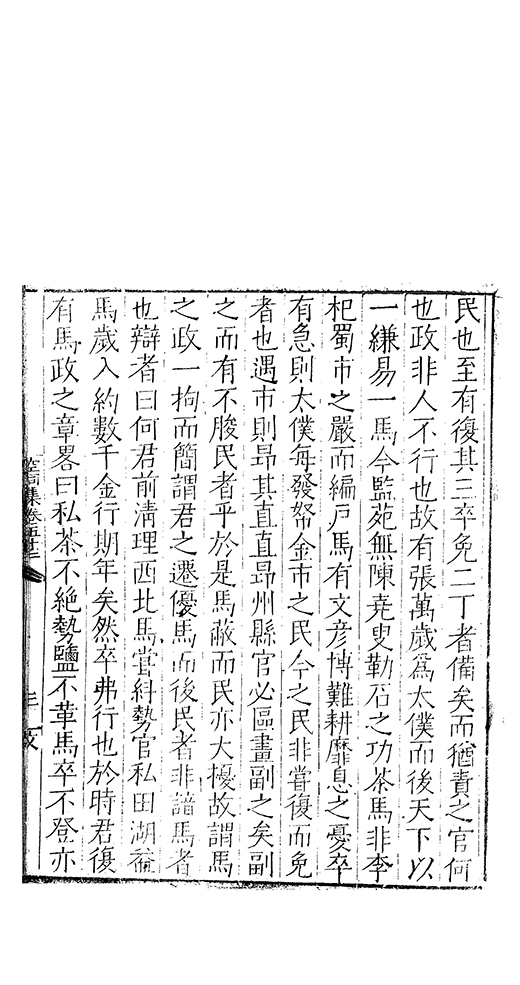 民也至有復其三卒免二丁者備矣而猶責之官何
也政非人不行也故有張萬歲爲太僕而後天下以
一縑易一馬今監苑無陳堯叟勒石之功茶馬非李
杞蜀市之嚴而編戸馬有文彦博難耕靡息之憂卒
有急則太僕每發帑金市之民今之民非嘗復而免
者也遇市則昂其直直昂州縣官必區畫副之矣副
之而有不朘民者乎於是馬蔽而民亦大擾故謂馬
之政一拘而簡謂君之遷優馬而後民者非諳馬者
也辯者曰何君前淸理西北馬嘗糾勢官私田湖
馬歲入約數千金行期年矣然卒弗行也於時君復
有馬政之章畧曰私茶不絶勢鹽不革馬卒不登亦
空同集卷五十三